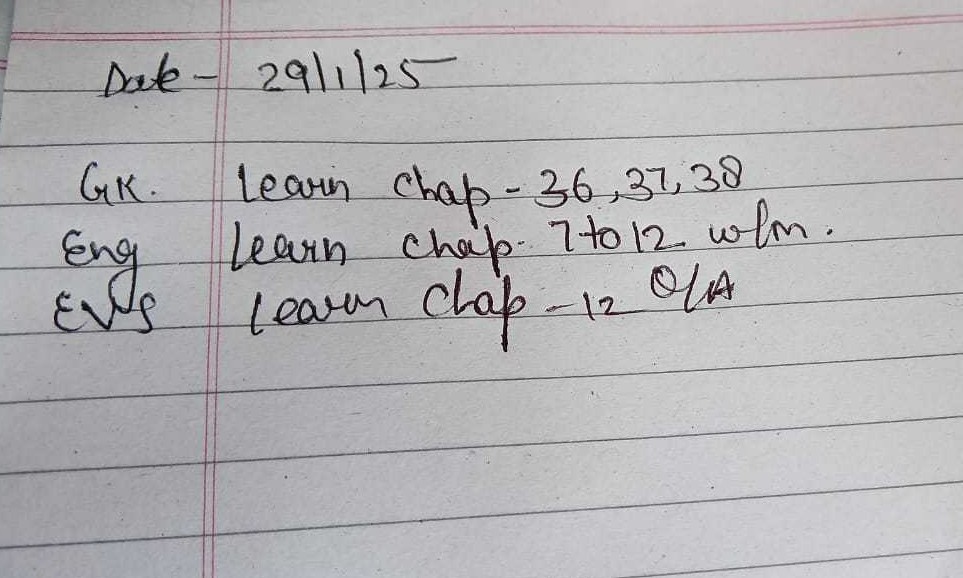 Date - 29/1/25
GK. Learn Chap - 36, 37, 38
Eng Learn Chap - 7 to 12 w/m.
EVS Learn Chap - 12 Q/A